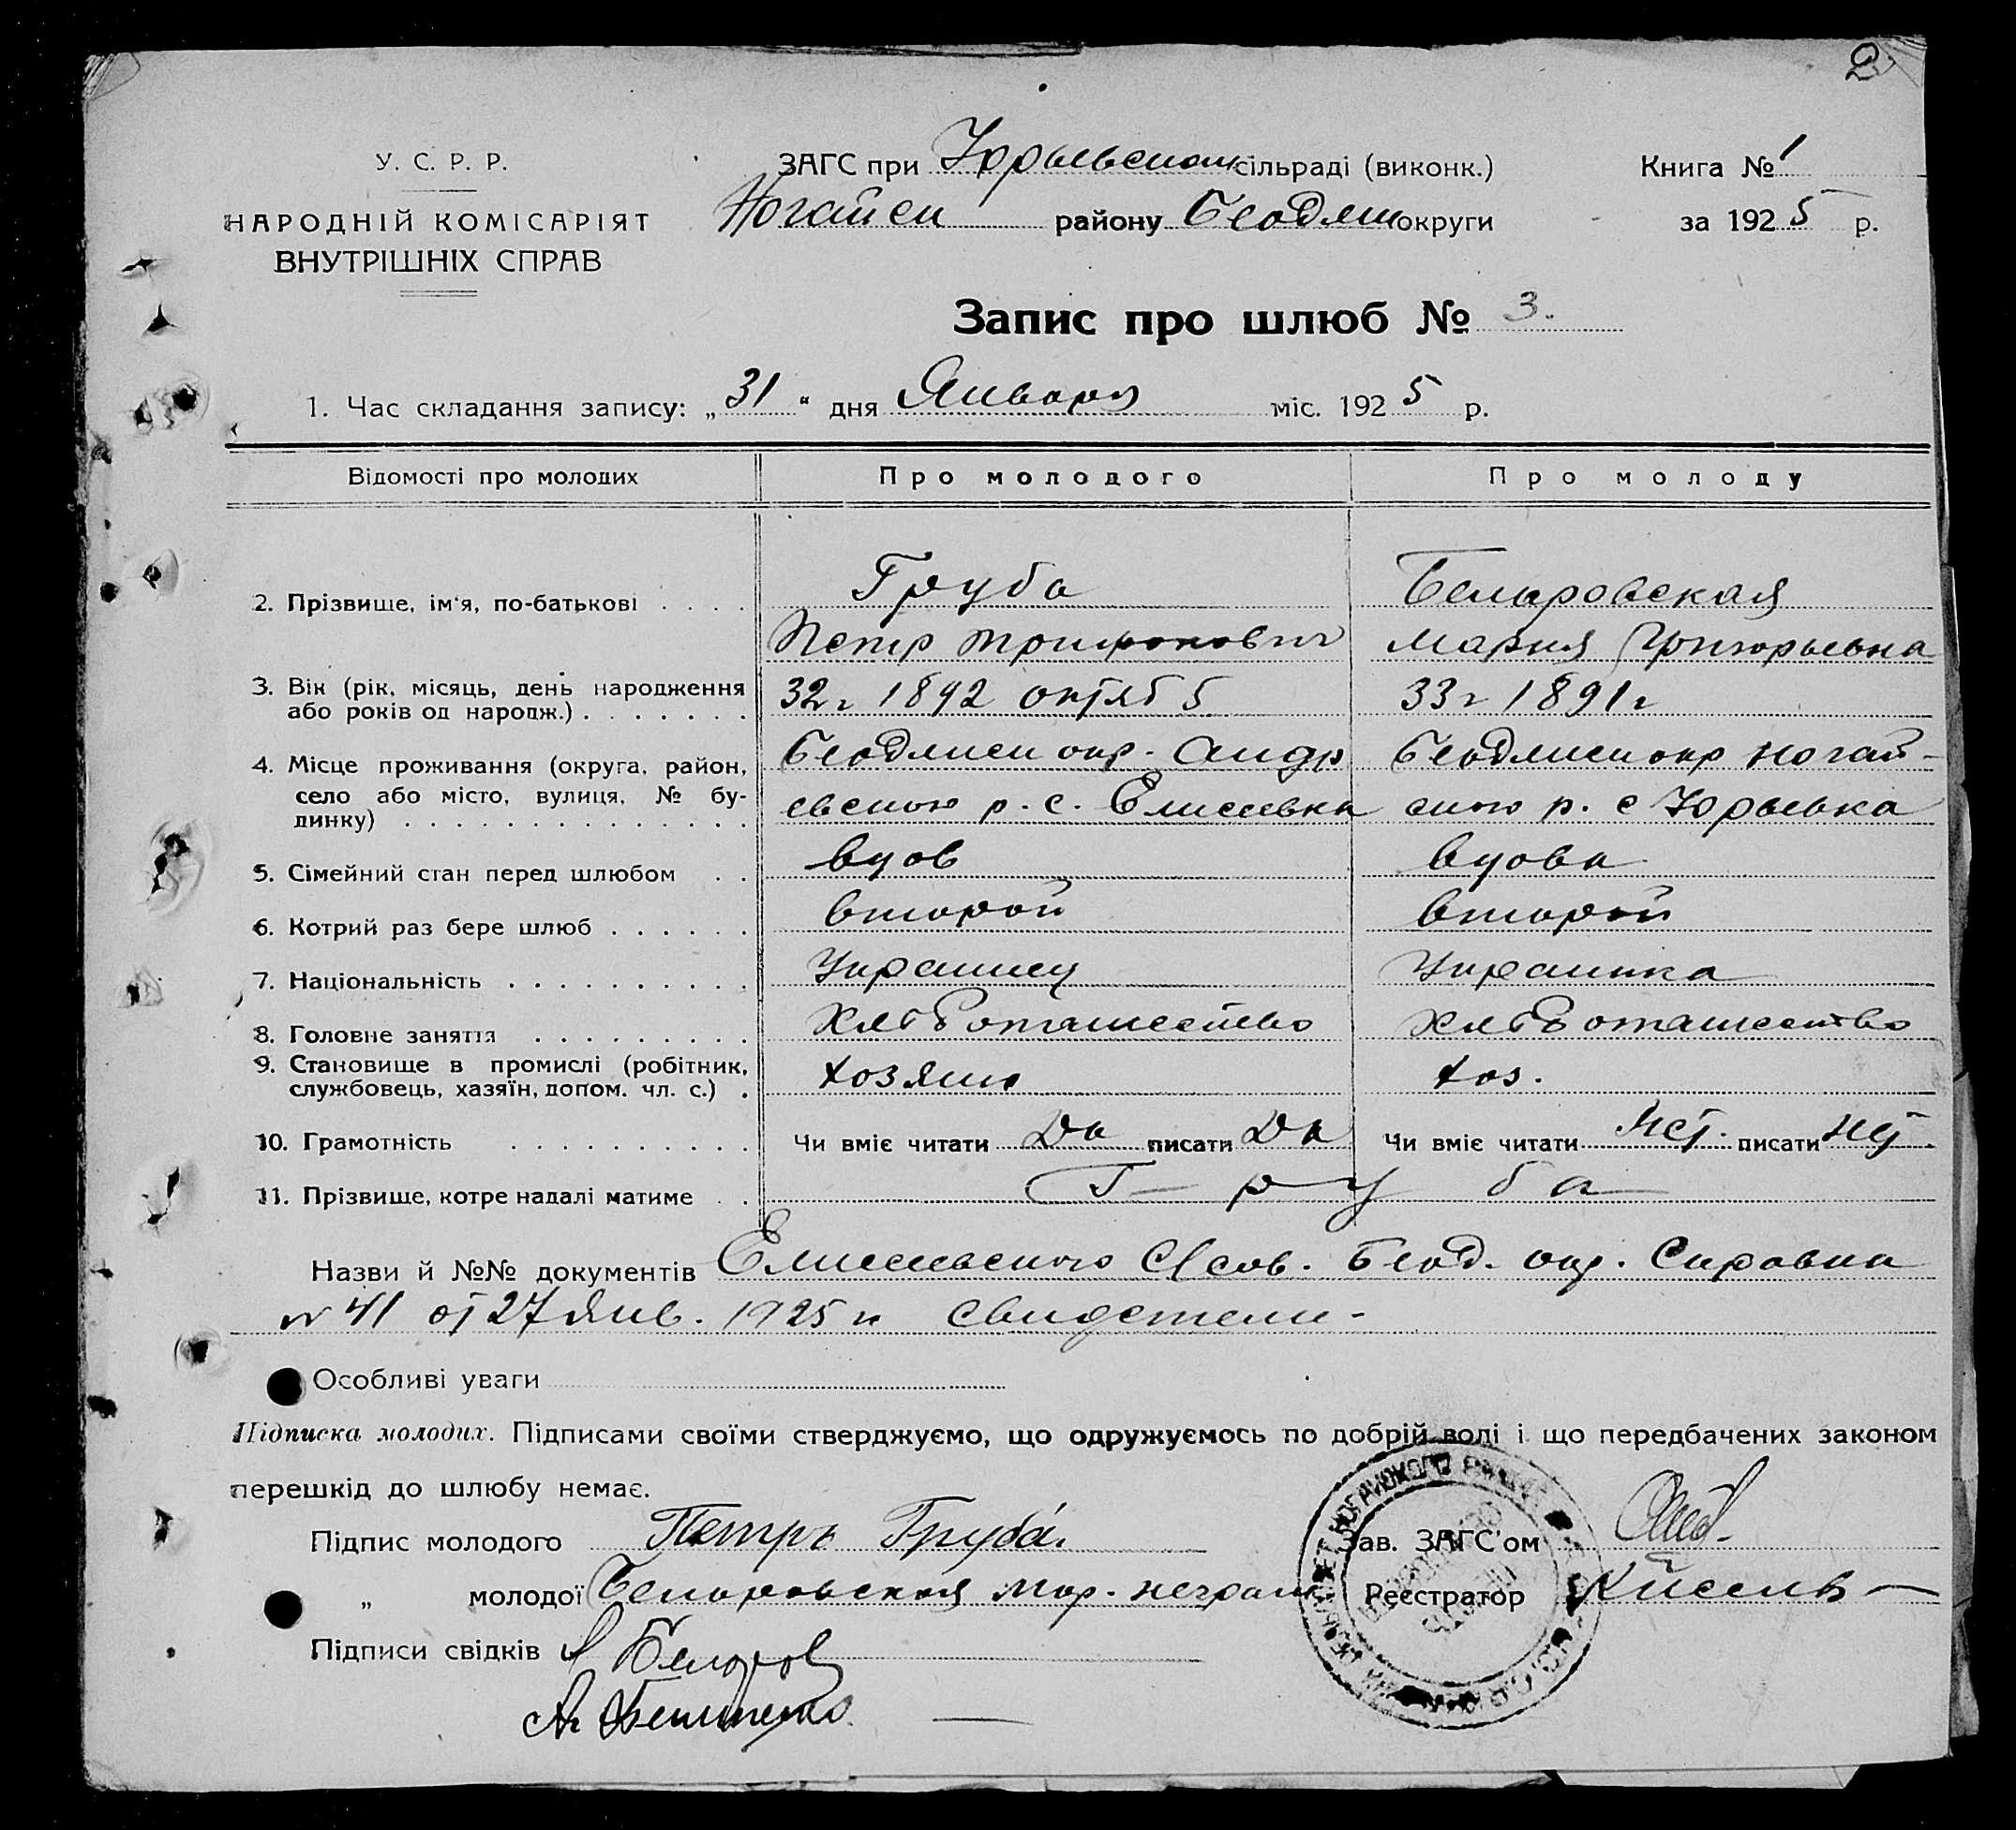 2
У. С. Р. Р.
НАРОДНІЙ КОМІСАРІЯТ
ВНУТРІШНІХ СПРАВ
ЗАГС при Юрьевском сільраді (виконк.)
Ногайск району Бердянск округи
Книга № 1
за 1925 р.
Запис про шлюб № 3.
1. Час складання запису: „31“ дня Января міс. 1925 р.
Відомості про молодих Про молодого Про молоду
2. Прізвище, ім'я, по-батькові . . . . Груба Беляровская
Петр Трифонович Мария Григорьевна
3. Вік (рік, місяць, день народження
або років од народж.) . . . . . . . 32 г 1892 октяб 5 33 г 1891 г
4. Місце проживання (округа, район,
село або місто, вулиця, № бу-
динку) . . . . . . . . . . . . . .
Бердянск окр. Андр
евского р. с. Елисеевка
Бердянск окр Ногай-
ского р. с Юрьевка
5. Сімейний стан перед шлюбом . . вдов вдова
6. Котрий раз бере шлюб . . . . . . второй второй
7. Національність . . . . . . . . . . Украинец Украинка
8. Головне заняття . . . . . . . . . Хлебопашество Хлебопашество
9. Становище в промислі (робітник,
службовець, хазяїн, допом. чл. с.) . хозяин хоз.
10. Грамотність . . . . . . . . . . Чи вміє читати Да писати Да Чи вміє читати Нет. писати Нет.
11. Прізвище, котре надалі матиме . . Груба
Назви й №№ документів Елисеевского С/сов. Берд. окр. Справка
№ 41 от 27 Янв. 1925 г. свидетели-
Особливі уваги
Підписка молодих. Підписами своїми стверджуємо, що одружуємось по добрій волі і що передбачених законом
перешкід до шлюбу немає.
Підпис молодого Петръ Груба Зав. ЗАГС'ом
„ молодої Беляровская Мар. неграм. Реєстратор Кисель
Підписи свідків